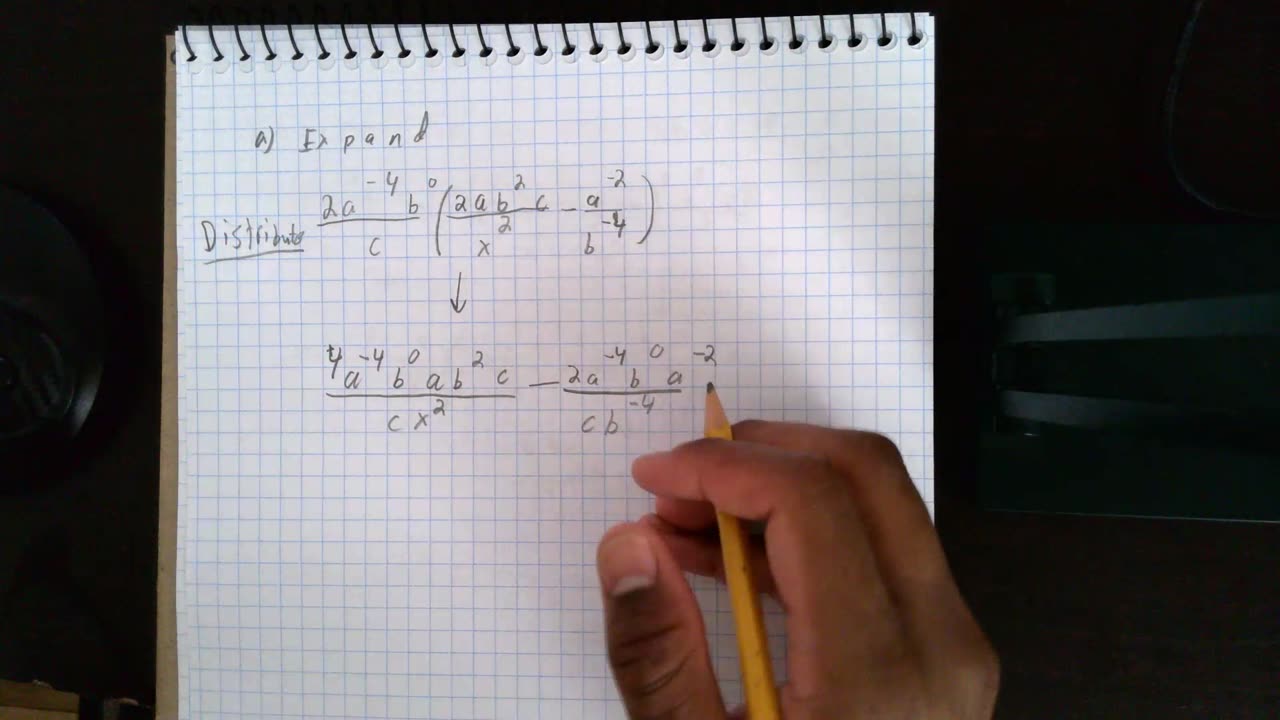 a) Expand
Distribute 2a^-4 b^0 / c (2ab^2 c / x^2 - a^-2 / b^-4)
↓
4a^-4 b^0 ab^2 c / cx^2 - 2a^-4 b^0 a^-2 / cb^-4